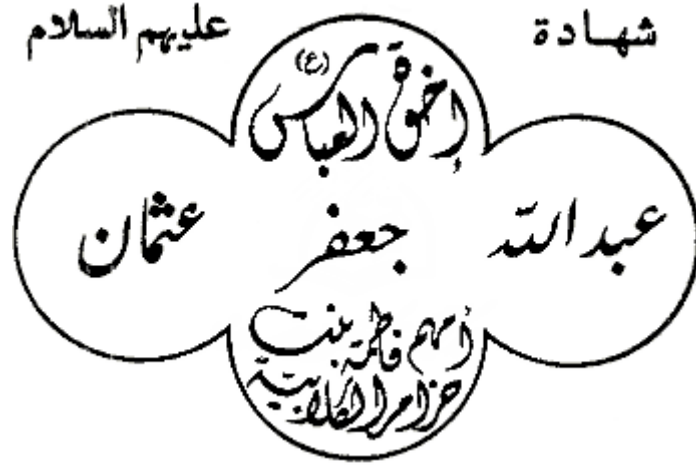 شهادة عليهم السلام
إخوة العباس (ع)
عبد الله جعفر عثمان
أمهم فاطمة بنت
حزام الكلابية